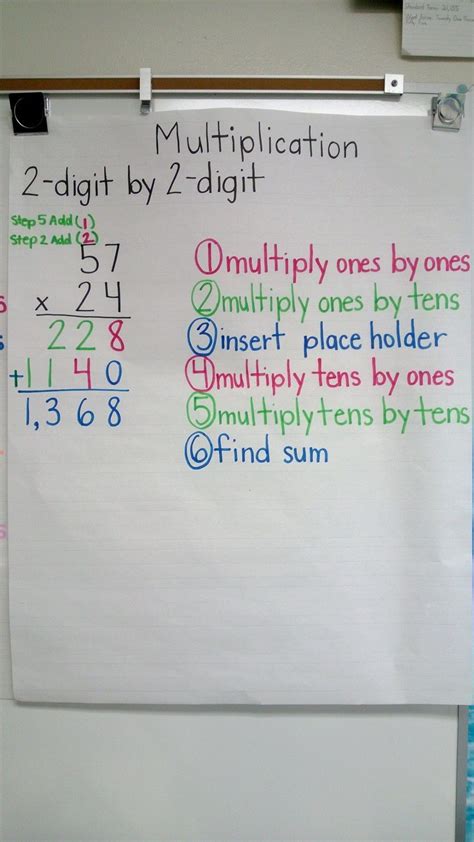 Standard Form: 21,053
Multiplication
2-digit by 2-digit
Step 5 Add (1)
Step 2 Add (2)
57
x 24
228
+1140
1,368
①multiply ones by ones
②multiply ones by tens
③insert place holder
④multiply tens by ones
⑤multiply tens by tens
⑥find sum